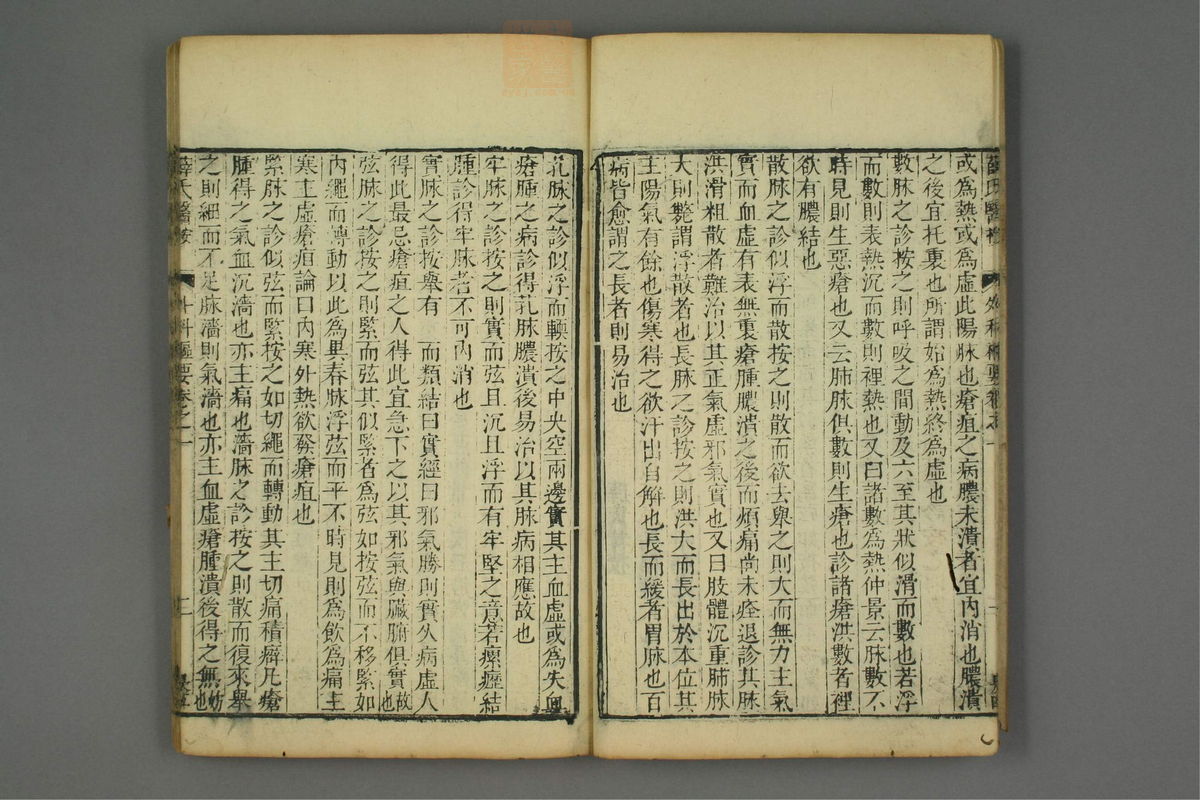 薛氏醫按
或為熱或為虛此陽脉也瘡疽之病膿未潰者宜內消也膿潰
之後宜托裏也所謂始為熱終為虛也
數脉之診按之則呼吸之間動及六至其狀似滑而數也若浮
而數則表熱沉而數則裡熱也又曰諸數為熱仲景云脉數不
時見則生惡瘡也又云肺脉俱數則生瘡也診諸瘡洪數者裡
欲有膿結也
散脉之診似浮而散按之則散而欲去舉之則大而無力主氣
實而血虛有表無裏瘡腫膿潰之後而煩痛尚未痊退診其脉
洪滑粗散者難治以其正氣虛邪氣實也又曰肢體沉重肺脉
大則斃謂浮散者也長脉之診按之則洪大而長出於本位其
主陽氣有餘也傷寒得之欲汗出自解也長而緩者胃脉也百
病皆愈謂之長者則易治也
芤脉之診似浮而軟按之中央空兩邊實其主血虛或為失血
瘡腫之病診得芤脉膿潰後易治以其脉病相應故也
牢脉之診按之則實而弦且沉且浮而有牢堅之意若瘰癧結
腫診得牢脉者不可內消也
實脉之診按舉有 而類結曰實經曰邪氣勝則實久病虛人
得此最忌瘡疽之人得此宜急下之以其邪氣與臟腑俱實故也
弦脉之診按之則緊而弦其似緊者為弦如按弦而不移緊如
內繩而轉動以此為異春脉浮弦而平不時見則為飲為痛主
寒主虛瘡疽論曰內寒外熱欲發瘡疽也
緊脉之診似弦而緊按之如切繩而轉動其主切痛積癖凡瘡
腫得之氣血沉濇也亦主痛也濇脉之診按之則散而復來舉
之則細而不足脉濇則氣濇也亦主血虛瘡腫潰後得之無妨也
薛氏醫按 外科樞要卷之一 三